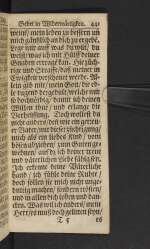 Gebet in Widerwärtigkeit. 441
wenn/ mein leben zu bessern un
mich gäntzlich an dich zu ergebē.
Lege mir auff was du wilt/ du
weist was ich mit Hülff deiner
Gnaden ertragen kan. Hie züch-
tige und straffe/ daß meiner in
Ewigkeit verschonet werde. Al-
lein gib mir/ mein Gott/ die ed-
le tugend der gedult/ welche mir
so hochnötig/ damit ich deinen
Willen thue/ und erlange die
Verheissung. Doch wollest du
nicht anders/ deñ wie ein getreu-
er Vater/ mir dieses zuschickē/und
mich als ein liebes kind/ vom
bösen abziehen/ zum Guten ge-
wehnen/ auf daß ich deiner treue
und väterlichen Liebe fähig sey.
Ich erkenne deine Väterliche
hand/ ich fühle deine Ruhte/
doch sollen sie mich nicht unge-
dultig machen/ sondern reitzen/
und in allen dich loben und dan-
ken. Was wil ich anders/ mein
Herr/ es muß doch gelitten seyn/
T 5 es